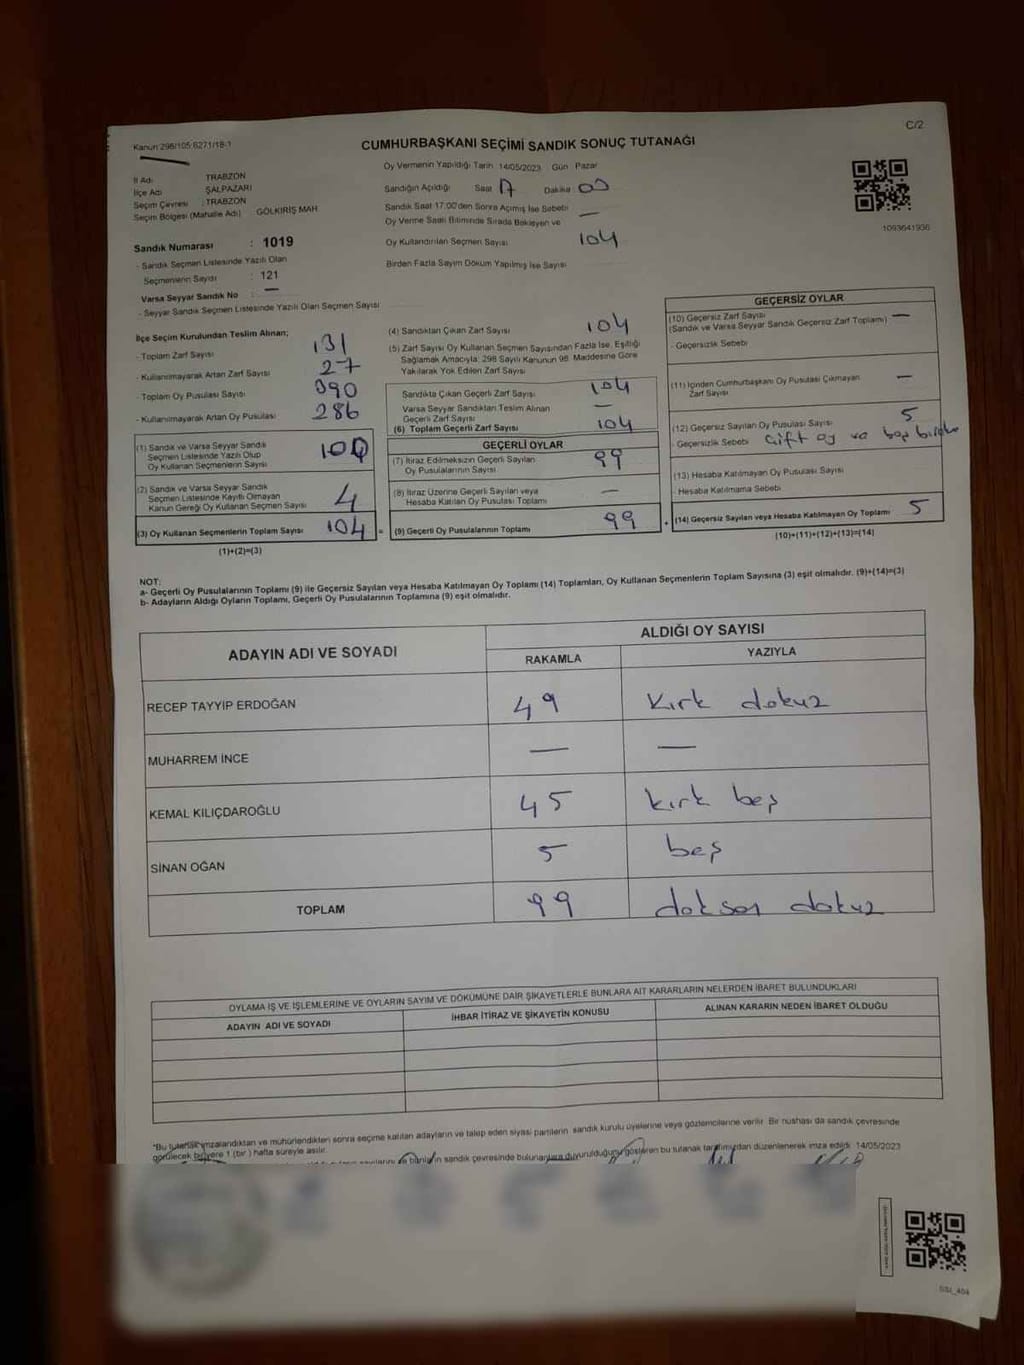 C/2
Kanun 298/105:6271/18-1
CUMHURBAŞKANI SEÇİMİ SANDIK SONUÇ TUTANAĞI
İl Adı TRABZON
İlçe Adı ŞALPAZARI
Seçim Çevresi : TRABZON
Seçim Bölgesi (Mahalle Adı) GÖLKİRİŞ MAH
Sandık Numarası : 1019
- Sandık Seçmen Listesinde Yazılı Olan
Seçmenlerin Sayısı : 121
Varsa Seyyar Sandık No : —
- Seyyar Sandık Seçmen Listesinde Yazılı Olan Seçmen Sayısı
Oy Vermenin Yapıldığı Tarih 14/05/2023 Gün Pazar
Sandığın Açıldığı Saat 17 Dakika 00
Sandık Saat 17:00'den Sonra Açılmış İse Sebebi
Oy Verme Saati Bitiminde Sırada Bekleyen ve —
Oy Kullandırılan Seçmen Sayısı 104
Birden Fazla Sayım Döküm Yapılmış İse Sayısı
1093641936
İlçe Seçim Kurulundan Teslim Alınan;
- Toplam Zarf Sayısı 131
- Kullanılmayarak Artan Zarf Sayısı 27
- Toplam Oy Pusulası Sayısı 390
- Kullanılmayarak Artan Oy Pusulası 286
(1) Sandık ve Varsa Seyyar Sandık
Seçmen Listesinde Yazılı Olup
Oy Kullanan Seçmenlerin Sayısı
(2) Sandık ve Varsa Seyyar Sandık
Seçmen Listesinde Kayıtlı Olmayan
Kanun Gereği Oy Kullanan Seçmen Sayısı 4
(3) Oy Kullanan Seçmenlerin Toplam Sayısı 104 =
(1)+(2)=(3)
(4) Sandıktan Çıkan Zarf Sayısı 104
(5) Zarf Sayısı Oy Kullanan Seçmen Sayısından Fazla İse, Eşitliği
Sağlamak Amacıyla, 298 Sayılı Kanunun 98. Maddesine Göre
Yakılarak Yok Edilen Zarf Sayısı
Sandıkta Çıkan Geçerli Zarf Sayısı 104
Varsa Seyyar Sandıktan Teslim Alınan
Geçerli Zarf Sayısı —
(6) Toplam Geçerli Zarf Sayısı 104
GEÇERLİ OYLAR
(7) İtiraz Edilmeksizin Geçerli Sayılan
Oy Pusulalarının Sayısı 99
(8) İtiraz Üzerine Geçerli Sayılan veya
Hesaba Katılan Oy Pusulası Toplamı —
(9) Geçerli Oy Pusulalarının Toplamı 99 +
GEÇERSİZ OYLAR
(10) Geçersiz Zarf Sayısı —
(Sandık ve Varsa Seyyar Sandık Geçersiz Zarf Toplamı)
- Geçersizlik Sebebi
(11) İçinden Cumhurbaşkanı Oy Pusulası Çıkmayan —
Zarf Sayısı
(12) Geçersiz Sayılan Oy Pusulası Sayısı 5
- Geçersizlik Sebebi Çift oy ve boş
(13) Hesaba Katılmayan Oy Pusulası Sayısı
- Hesaba Katılmama Sebebi
(14) Geçersiz Sayılan veya Hesaba Katılmayan Oy Toplamı 5
(10)+(11)+(12)+(13)=(14)
NOT:
a- Geçerli Oy Pusulalarının Toplamı (9) ile Geçersiz Sayılan veya Hesaba Katılmayan Oy Toplamı (14) Toplamları, Oy Kullanan Seçmenlerin Toplam Sayısına (3) eşit olmalıdır. (9)+(14)=(3)
b- Adayların Aldığı Oyların Toplamı, Geçerli Oy Pusulalarının Toplamına (9) eşit olmalıdır.
ADAYIN ADI VE SOYADI
ALDIĞI OY SAYISI
RAKAMLA YAZIYLA
RECEP TAYYİP ERDOĞAN 49 kırk dokuz
MUHARREM İNCE — —
KEMAL KILIÇDAROĞLU 45 kırk beş
SİNAN OĞAN 5 beş
TOPLAM 99 doksan dokuz
OYLAMA İŞ VE İŞLEMLERİNE VE OYLARIN SAYIM VE DÖKÜMÜNE DAİR ŞİKAYETLERLE BUNLARA AİT KARARLARIN NELERDEN İBARET BULUNDUKLARI
ADAYIN ADI VE SOYADI İHBAR İTİRAZ VE ŞİKAYETİN KONUSU ALINAN KARARIN NEDEN İBARET OLDUĞU
*Bu tutanak imzalandıktan ve mühürlendikten sonra seçime katılan adayların ve talep eden siyasi partilerin sandık kurulu üyelerine veya gözlemcilerine verilir. Bir nushası da sandık çevresinde
görülecek bir yere 1 (bir ) hafta süreyle asılır.
sandık çevresinde bulunanlara duyurulduğunu gösteren bu tutanak tarafımızdan düzenlenerek imza edildi. 14/05/2023